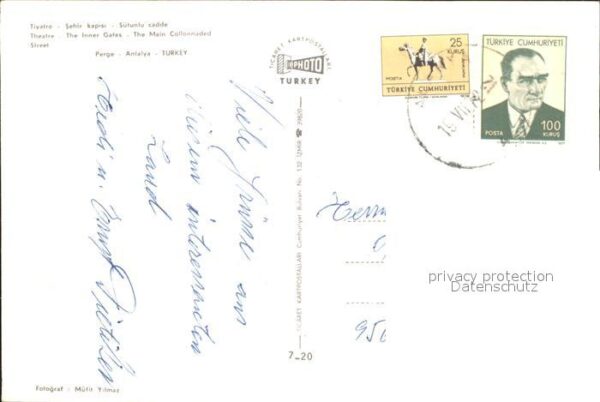 Tiyatro - Şehir kapısı - Sütunlu cadde
Theatre - The Inner Gates - The Main Collonnaded
Street
Perge - Antalya - TURKEY
TİCARET KARTPOSTALLARI
KPHOTO
TURKEY
25
KURUŞ
POSTA
TÜRKİYE CUMHURİYETİ
TÜRKİYE CUMHURİYETİ
POSTA
100
KURUŞ
Viele Grüsse aus
diesem interessanten
Land
Heidi u. Ernst
TİCARET KARTPOSTALLARI Cumhuriyet Bulvarı No. 132 İZMİR 39820
7-20
956
privacy protection
Datenschutz
Fotoğraf - Müfit Yılmaz